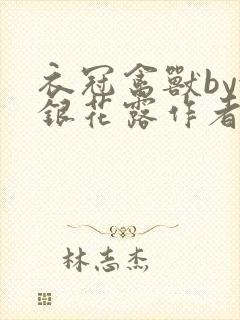 衣冠禽獸by
銀花露作者
林志杰